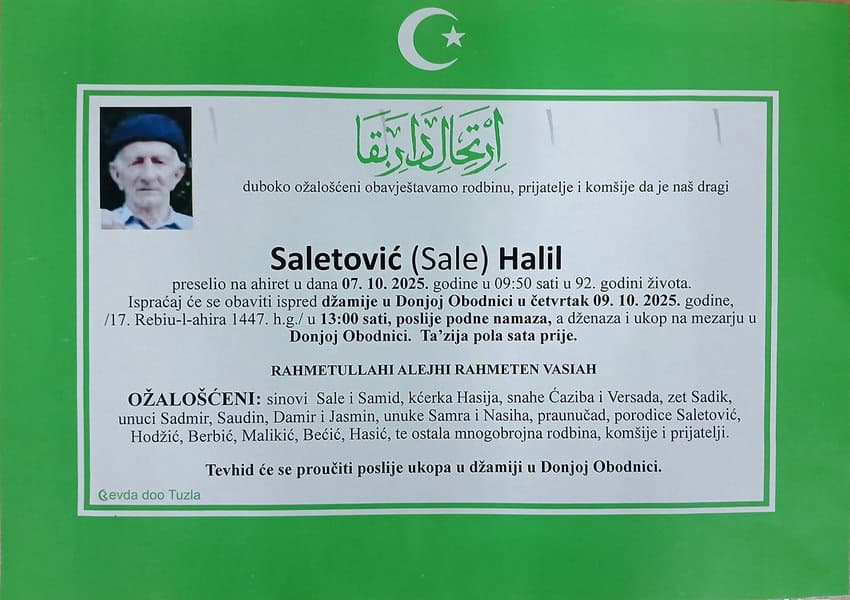 اِرْتِحَالِ دَارِ بَقَا
duboko ožalošćeni obavještavamo rodbinu, prijatelje i komšije da je naš dragi
Saletović (Sale) Halil
preselio na ahiret u dana 07. 10. 2025. godine u 09:50 sati u 92. godini života.
Ispraćaj će se obaviti ispred džamije u Donjoj Obodnici u četvrtak 09. 10. 2025. godine,
/17. Rebiu-l-ahira 1447. h.g./ u 13:00 sati, poslije podne namaza, a dženaza i ukop na mezarju u
Donjoj Obodnici. Ta'zija pola sata prije.
RAHMETULLAHI ALEJHI RAHMETEN VASIAH
OŽALOŠĆENI: sinovi Sale i Samid, kćerka Hasija, snahe Ćaziba i Versada, zet Sadik,
unuci Sadmir, Saudin, Damir i Jasmin, unuke Samra i Nasiha, praunučad, porodice Saletović,
Hodžić, Berbić, Malikić, Bećić, Hasić, te ostala mnogobrojna rodbina, komšije i prijatelji.
Tevhid će se proučiti poslije ukopa u džamiji u Donjoj Obodnici.
evda doo Tuzla